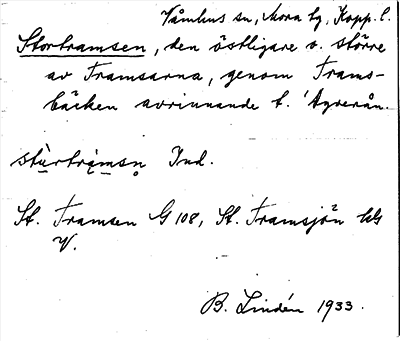 Våmhus sn, Mora tg, Kopp. l.
Stortramsen, den östligare o. större
av Tramsarna, genom Trams-
bäcken avrinnande t. Ögerån.
stùrtràmsn Ind.
St. Tramsen G 108, St. Tramsjön
V.
B. Lindén 1933.